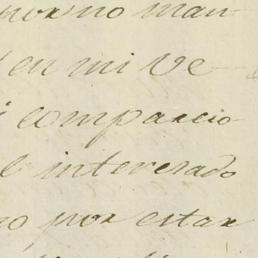 por no man-
en mi ve-
comparcio-
interesado
por estar